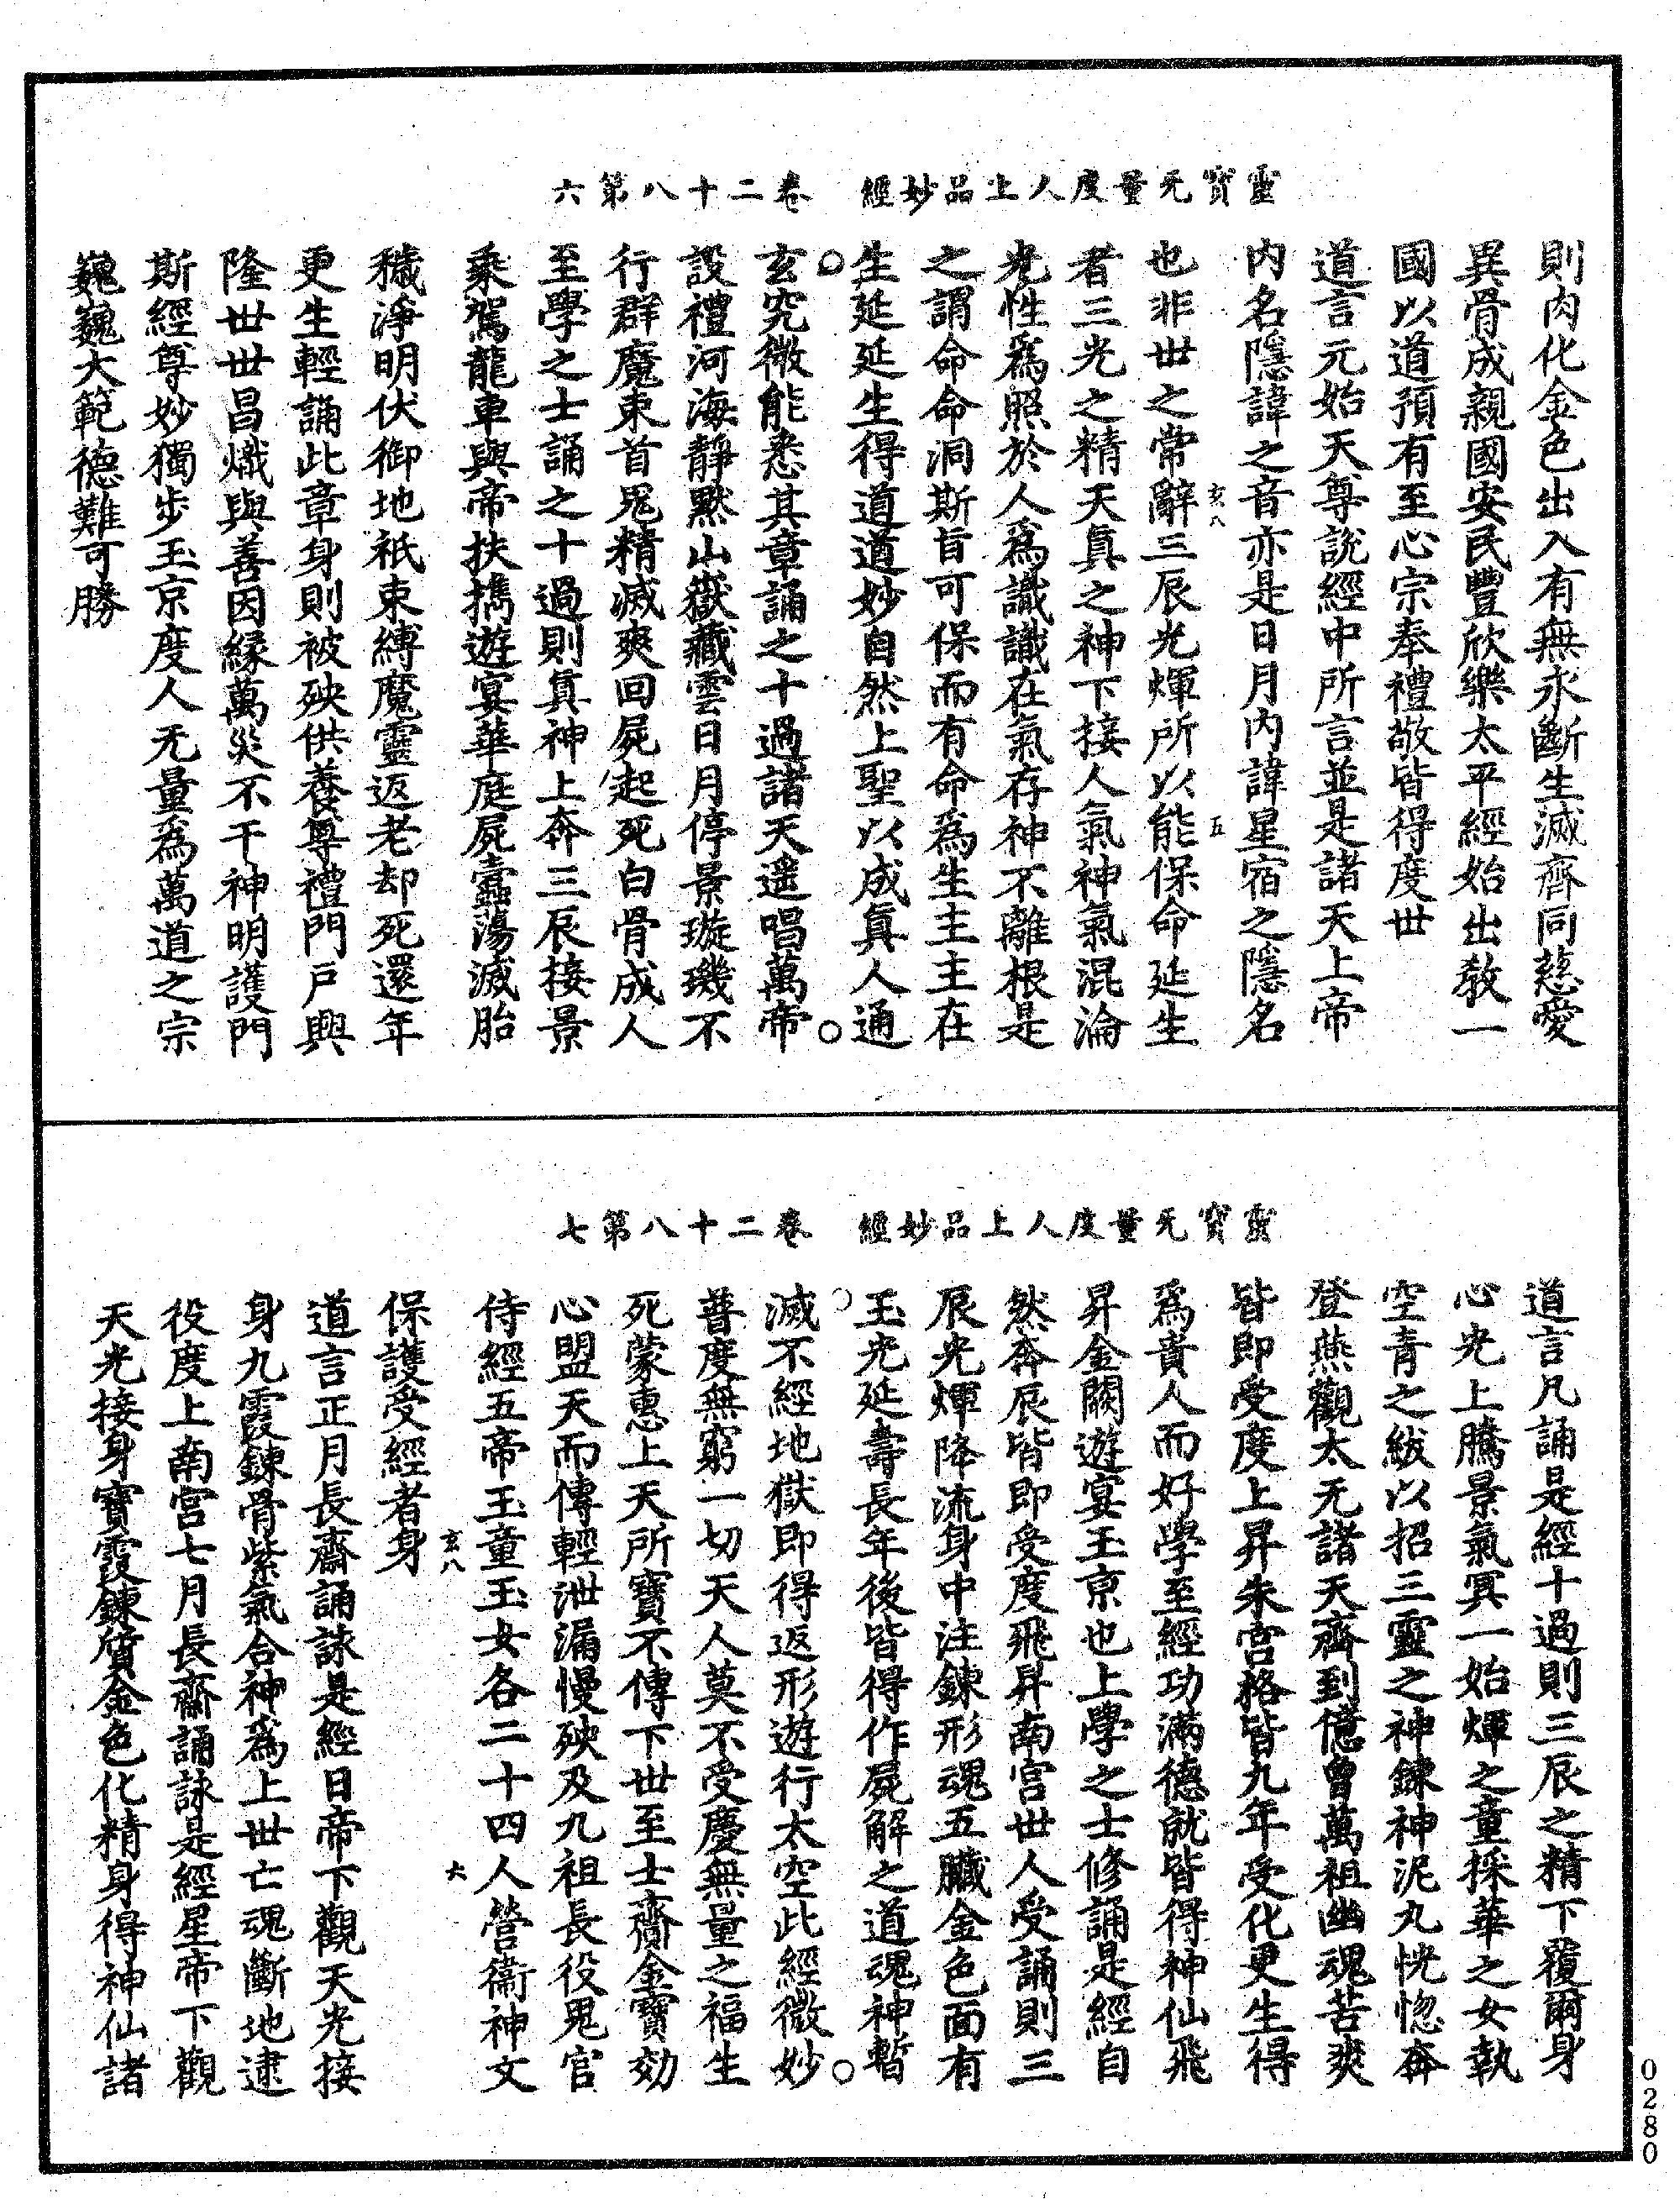 靈寶无量度人上品妙經　卷二十八第六
則肉化金色出入有無永斷生滅齊同慈愛
異骨成親國安民豐欣樂太平經始出教一
國以道預有至心宗奉禮敬皆得度世
道言元始天尊說經中所言並是諸天上帝
内名隱諱之音亦是日月内諱星宿之隱名
玄八　五
也非世之常辭三辰光煇所以能保命延生
者三光之精天真之神下接人氣神氣混淪
光性爲照於人爲識識在氣存神不離根是
之謂命命洞斯旨可保而有命爲生主主在
生延延生得道道妙自然上聖以成真人通
玄究微能悉其章誦之十過諸天遥唱萬帝
設禮河海靜默山嶽藏雲日月停景璇璣不
行群魔束首鬼精滅爽回屍起死白骨成人
至學之士誦之十過則真神上奔三辰接景
乘駕龍車與帝扶擕遊宴華庭屍蠹蕩滅胎
穢淨明伏御地祇束縛魔靈返老却死還年
更生輕誦此章身則被殃供養尊禮門戶興
隆世世昌熾與善因緣萬災不干神明護門
斯經尊妙獨步玉京度人无量爲萬道之宗
巍巍大範德難可勝
靈寶无量度人上品妙經　卷二十八第七
道言凡誦是經十過則三辰之精下覆爾身
心光上騰景氣冥一始煇之童採華之女執
空青之紱以招三靈之神鍊神泥丸恍惚奔
登燕觀太无諸天齊到億曾萬祖幽魂苦爽
皆即受度上昇朱宮格皆九年受化更生得
爲貴人而好學至經功滿德就皆得神仙飛
昇金闕遊宴玉京也上學之士修誦是經自
然奔辰皆即受度飛昇南宮世人受誦則三
辰光煇降流身中注鍊形魂五臟金色面有
玉光延壽長年後皆得作屍解之道魂神暫
滅不經地獄即得返形遊行太空此經微妙
普度無窮一切天人莫不受慶無量之福生
死蒙惠上天所寶不傳下世至士齎金寶効
心盟天而傳輕泄漏慢殃及九祖長役鬼官
侍經五帝玉童玉女各二十四人營衞神文
玄八　六
保護受經者身
道言正月長齋誦詠是經日帝下觀天光接
身九霞鍊骨紫氣合神爲上世亡魂斷地逮
役度上南宮七月長齋誦詠是經星帝下觀
天光接身寶霞鍊質金色化精身得神仙諸
0280